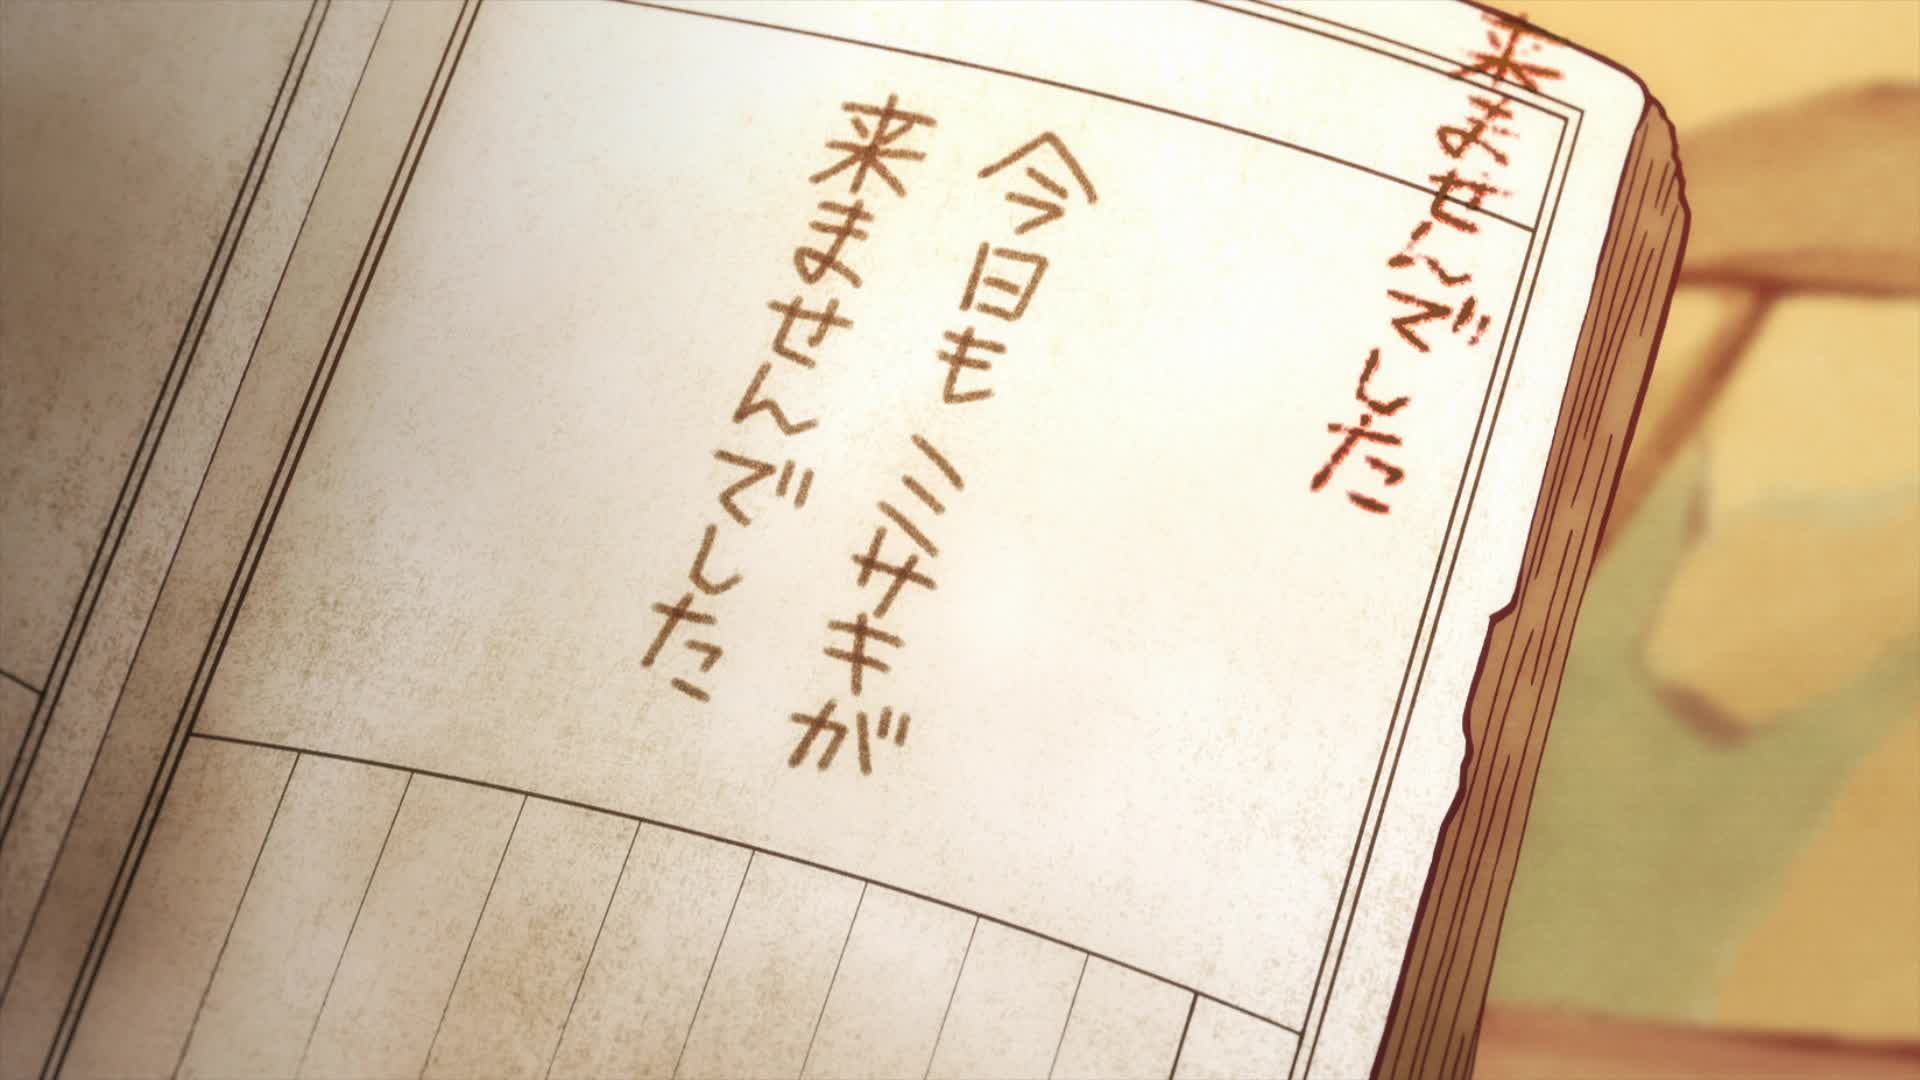 来ませんでした
今日もミサキが
来ませんでした